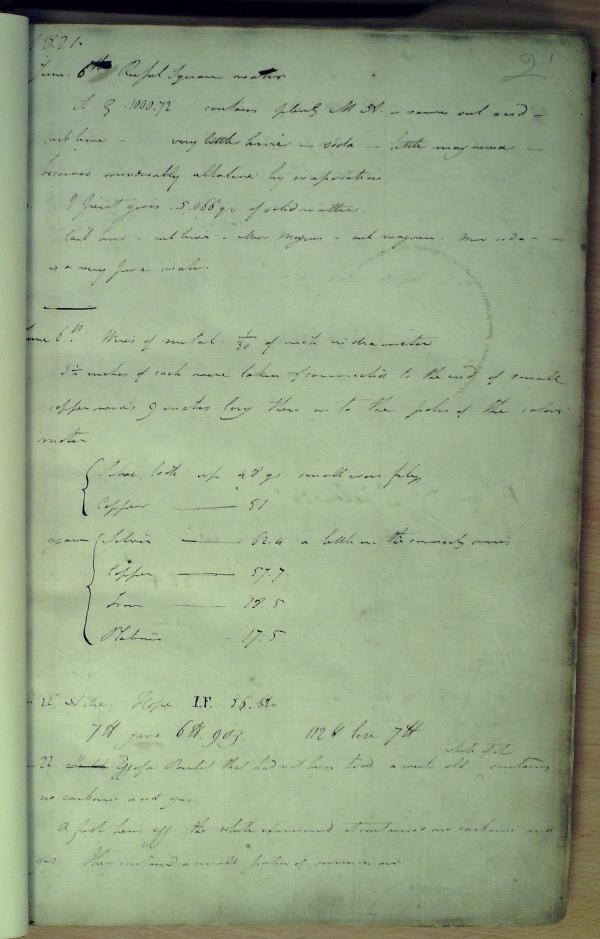 1821.
2
June 6th Russel Square water
S. G. 1000.72 contains plenty M A. - some sul acid -
carb lime - very little lime - soda - little magnesia -
becomes considerably alkaline by evaporation
1 pint gives 5.066 gr of solid matter.
Carb lime - sul lime - Mur Magnes - sul magnes. Mur soda -
is a very pure water.
June 6th. Wires of metal 1/30 of inch in diameter
3½ inches of each were taken & connected to the end of small
copper wires 9 inches long then on to the poles of the calori
motor
Silver took up 48 gs small iron filings
Copper — 51
again Silver — 62.4 a little on the connecting wires
Copper — 57.7.
Iron — 18.5
Platina - 17.5
22 Nitre. Hope I.F.
7 lb gave 6 lb. 903. 112 lb lose 7 lb
22 Eggs of a Poultry that had not been trod a week old contains
no carbonic acid gas.
A fresh hens egg the white examined it contains no carbonic acid
gas. They contained a small portion of common air.